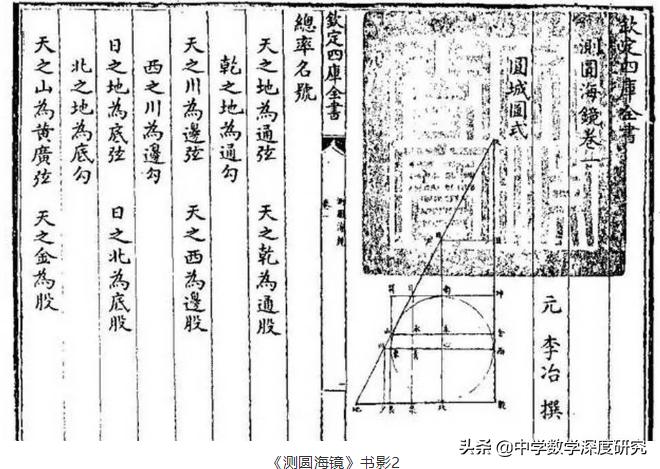 欽定四庫全書
測圓海鏡卷一
元 李冶 撰
圓城圖式
南
坤
山
川
東
心
金
西
地
夕
艮
泉
北
乾
欽定四庫全書
測圓海鏡
卷一
總率名號
天之地為通弦 天之乾為通股
乾之地為通勾
天之川為邊弦 天之西為邊股
西之川為邊勾
日之地為底弦 日之北為底股
北之地為底勾
天之山為黃廣弦 天之金為股
头条 @中学数学深度研究
《测圆海镜》书影2